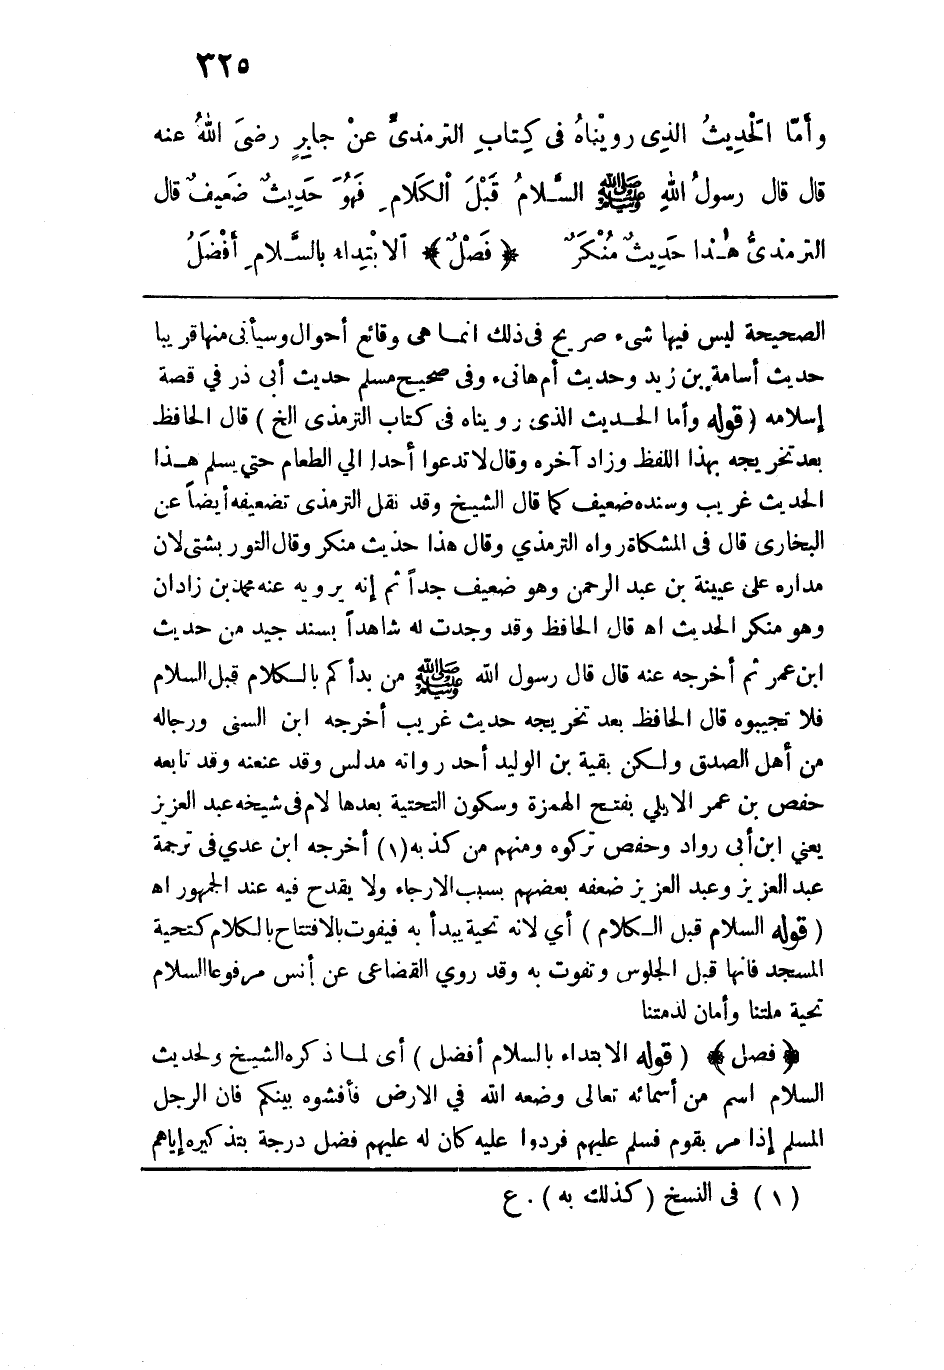 ٣٢٥
وأَمّا الْحَدِيثُ الذِى رويْنَاهُ فى كِتَابِ الترمذىِّ عنْ جابِرٍ رضىَ اللهُ عنه
قال قال رسولُ اللهِ ﷺ السَّلامُ قَبْلَ الْكَلامِ فَهُوَ حَدِيثٌ ضَعِيفٌ قال
الترمذىُّ هٰذا حَدِيثٌ مُنْكَرٌ ﴿ فَصْلٌ ﴾ الابْتِداء بالسَّلامِ أَفْضَلُ
الصحيحة ليس فيها شىء صريح فى ذلك انمـا هى وقائع أحوال وسيأتى منها قريبا
حديث أسامة بن زيد وحديث أم هانىء وفى صحيح مسلم حديث أبى ذر في قصة
إسلامه ( قوله وأما الحـديث الذى رويناه فى كتاب الترمذى الخ ) قال الحافظ
بعد تخريجه بهذا اللفظ وزاد آخره وقال لا تدعوا أحدا الي الطعام حتي يسلم هـذا
الحديث غريب وسنده ضعيف كما قال الشيخ وقد نقل الترمذى تضعيفه أيضاً عن
البخارى قال فى المشكاة رواه الترمذي وقال هذا حذيث منكر وقال التوربشتى لان
مداره على عيينة بن عبد الرحمن وهو ضعيف جداً ثم إنه يرويه عنه محمد بن زادان
وهو منكر الحديث اه قال الحافظ وقد وجدت له شاهداً بسند جيد من حديث
ابن عمر ثم أخرجه عنه قال قال رسول الله ﷺ من بدأ كم بالـكلام قبل السلام
فلا تجيبوه قال الحافظ بعد تخريجه حديث غريب أخرجه ابن السنى ورجاله
من أهل الصدق ولـكن بقية بن الوليد أحد رواته مدلس وقد عنعنه وقد تابعه
حفص بن عمر الايلي بفتح الهمزة وسكون التحتية بعدها لام فى شيخه عبد العزيز
يعني ابن أبى رواد وحفص تركوه ومنهم من كذبه (١) أخرجه ابن عدي فى ترجمة
عبد العزيز وعبد العزيز ضعفه بعضهم بسبب الارجاء ولا يقدح فيه عند الجمهور اه
( قوله السلام قبل الـكلام ) أي لانه تحية يبدأ به فيفوت بالافتتاح بالـكلام كتحية
المسجد فانها قبل الجلوس وتفوت به وقد روي القضاعى عن أنس مرفوعا السلام
تحية ملتنا وأمان لذمتنا
﴿ فصل ﴾ ( قوله الابتداء بالسلام أفضل ) أى لمـا ذكره الشيخ ولحديث
السلام اسم من أسمائه تعالى وضعه الله في الارض فأفشوه بينكم فان الرجل
المسلم إذا مر بقوم فسلم عليهم فردوا عليه كان له عليهم فضل درجة بتذكيره إياهم
( ١ ) فى النسخ ( كذلك به ) . ع